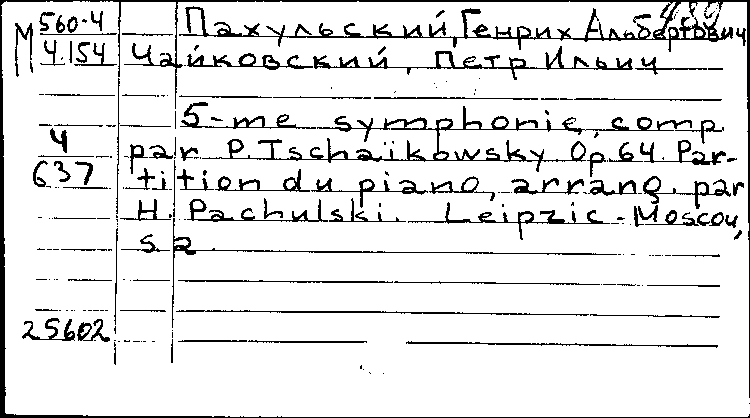 489
М 560-4 Пахульский, Генрих Альбертович
4.154 Чайковский, Петр Ильич
5-me symphonie, comp.
Ч par P. Tschaïkowsky Op. 64. Par-
637 tition du piano, arrang. par
H. Pachulski. Leipzic - Moscou,
s. a.
25602